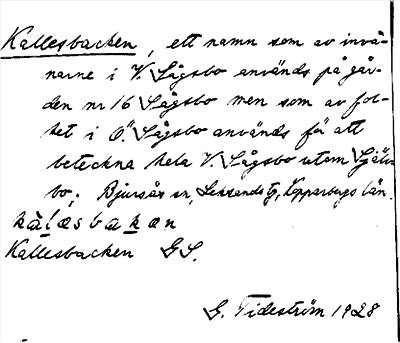 Kallesbacken, ett namn som av invå-
narne i V. Sågsbo används på går-
den nr 16 Sågsbo men som av fol-
ket i Ö. Sågsbo används få att
beteckna hela V. Sågsbo utom Själv-
bo; Bjursås sn, Leksands tg, Kopparbergs län.
kàlæsbakæn
Kallesbacken GS.
G. Tideström 1928